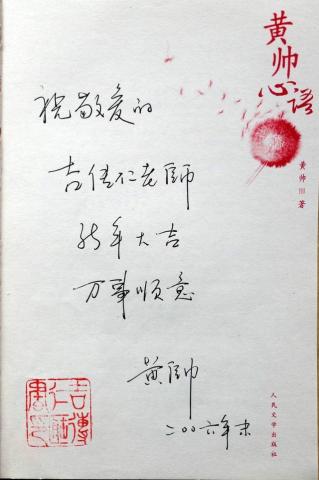 黄帅心语
黄帅 著
祝敬爱的
吉传仁老師
新年大吉
万事順意
黄帥
二00六年末
吉傳仁
人民文学出版社